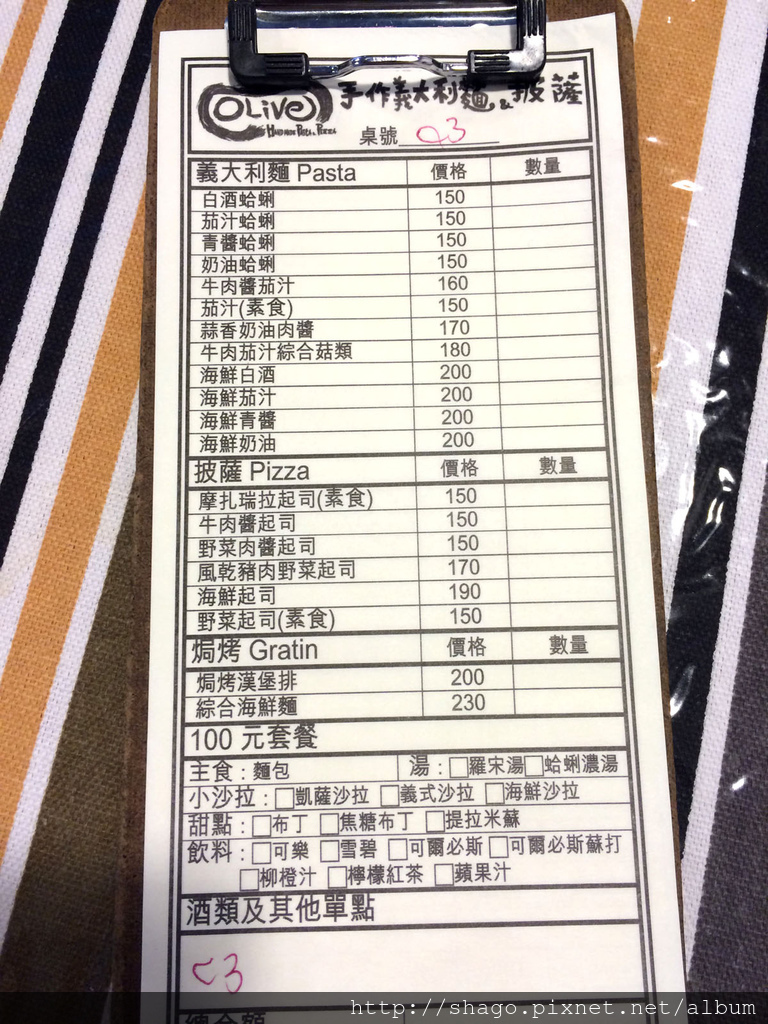 OLiVe 手作義大利麵&披薩
HAND MADE PASTA & PIZZA
桌號 C3
義大利麵 Pasta 價格 數量
白酒蛤蜊 150
茄汁蛤蜊 150
青醬蛤蜊 150
奶油蛤蜊 150
牛肉醬茄汁 160
茄汁(素食) 150
蒜香奶油肉醬 170
牛肉茄汁綜合菇類 180
海鮮白酒 200
海鮮茄汁 200
海鮮青醬 200
海鮮奶油 200
披薩 Pizza 價格 數量
摩扎瑞拉起司(素食) 150
牛肉醬起司 150
野菜肉醬起司 150
風乾豬肉野菜起司 170
海鮮起司 190
野菜起司(素食) 150
焗烤 Gratin 價格 數量
焗烤漢堡排 200
綜合海鮮麵 230
100 元套餐
主食：麵包 湯：□羅宋湯□蛤蜊濃湯
小沙拉：□凱薩沙拉 □義式沙拉 □海鮮沙拉
甜點：□布丁 □焦糖布丁 □提拉米蘇
飲料：□可樂 □雪碧 □可爾必斯□可爾必斯蘇打
□柳橙汁 □檸檬紅茶 □蘋果汁
酒類及其他單點
C3
總金額
http://shago.pixnet.net/album